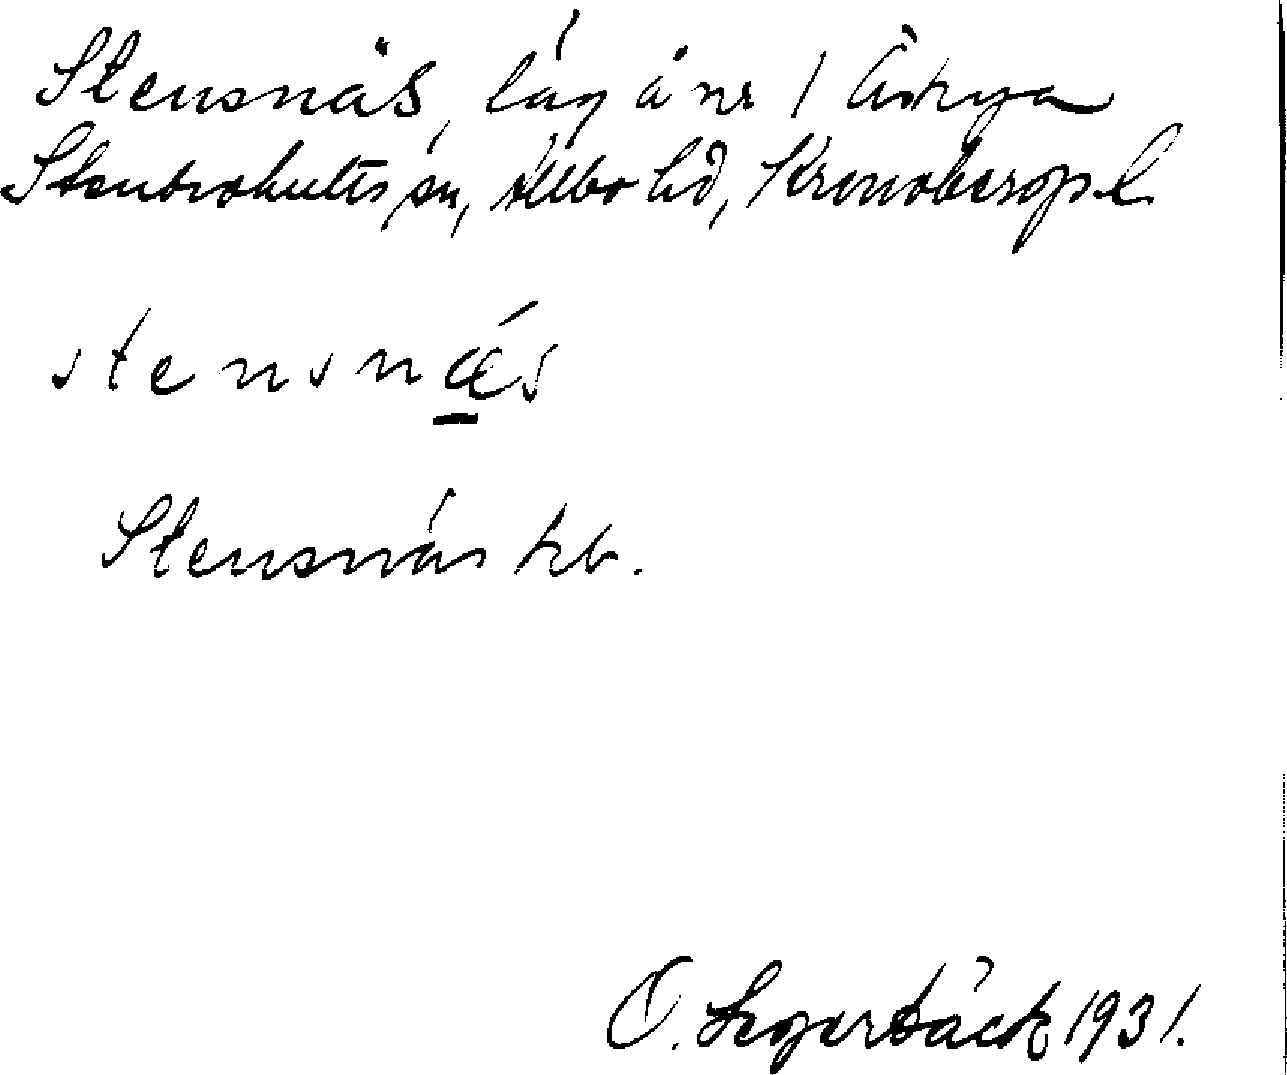 Stensnäs, låg å nr 1 Åkrya
Stenbrohults sn, Allbo hd, Kronobergs l
stensnæ̲´s
Stensnäs kb.
O. Segerbäck 1931.